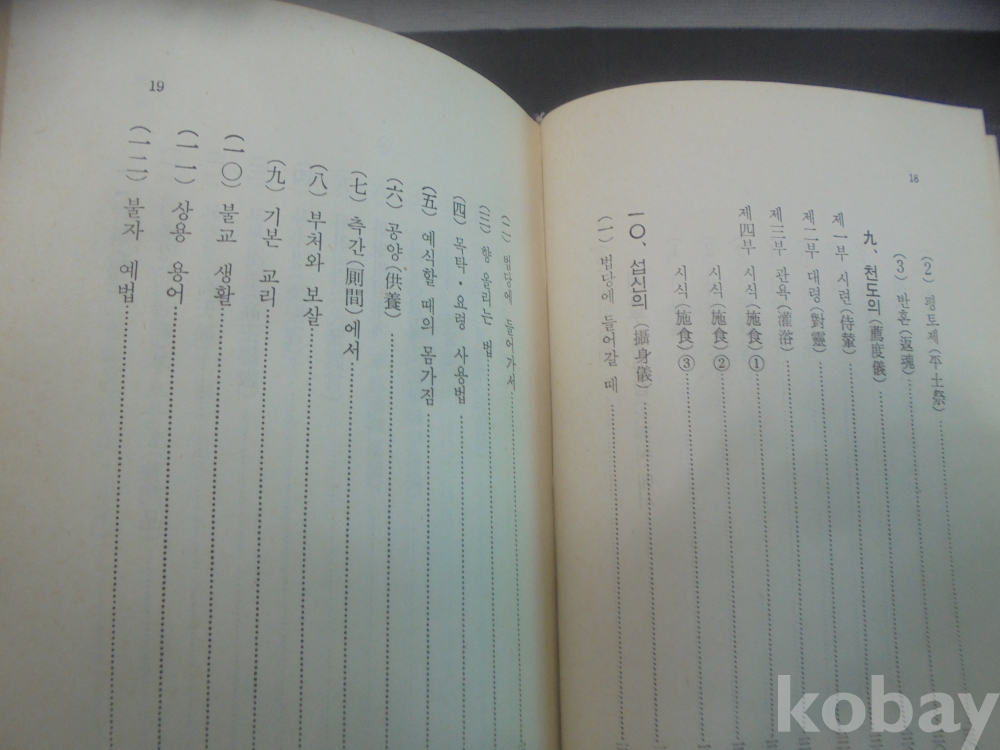 18
(2) 평토제(平土祭)
(3) 반혼(返魂)
九、천도의(薦度儀)
제一부 시련(侍輦)
제二부 대령(對靈)
제三부 관욕(灌浴)
제四부 시식(施食)①
시식(施食)②
시식(施食)③
一〇、섭신의(攝身儀)
(一) 법당에 들어갈 때
19
(二) 법당에 들어가서
(三) 향 올리는 법
(四) 목탁·요령 사용법
(五) 예식할 때의 몸가짐
(六) 공양(供養)
(七) 측간(厠間)에서
(八) 부처와 보살
(九) 기본 교리
(一〇) 불교 생활
(一一) 상용 용어
(一二) 불자 예법
kobay